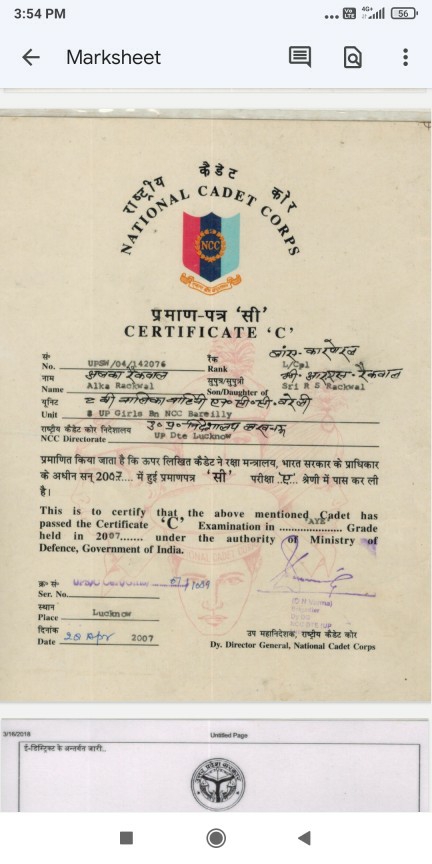 3:54 PM
4G+
56
Marksheet
राष्ट्रीय कैडेट कोर
NATIONAL CADET CORPS
NCC
प्रमाण-पत्र 'सी'
CERTIFICATE 'C'
सं०
No. UPSW/04/142076
रैंक
Rank L/Cpl
नाम अलका रैकवाल
Name Alka Rackwal
सुपुत्र/सुपुत्री
Son/Daughter of Sri R S Rackwal
यूनिट
Unit 8 UP Girls Bn NCC Bareilly
राष्ट्रीय कैडेट कोर निदेशालय
NCC Directorate UP Dte Lucknow
प्रमाणित किया जाता है कि ऊपर लिखित कैडेट ने रक्षा मन्त्रालय, भारत सरकार के प्राधिकार
के अधीन सन् 2007.... में हुई प्रमाणपत्र 'सी' परीक्षा 'ए' श्रेणी में पास कर ली
है।
This is to certify that the above mentioned Cadet has
passed the Certificate 'C' Examination in "AYE" Grade
held in 2007....... under the authority of Ministry of
Defence, Government of India.
क्र० सं०
Ser. No.
स्थान
Place Lucknow
दिनांक
Date 20 Apr 2007
उप महानिदेशक, राष्ट्रीय कैडेट कोर
Dy. Director General, National Cadet Corps
3/16/2018
Untitled Page
ई-डिस्ट्रिक्ट के अन्तर्गत जारी..